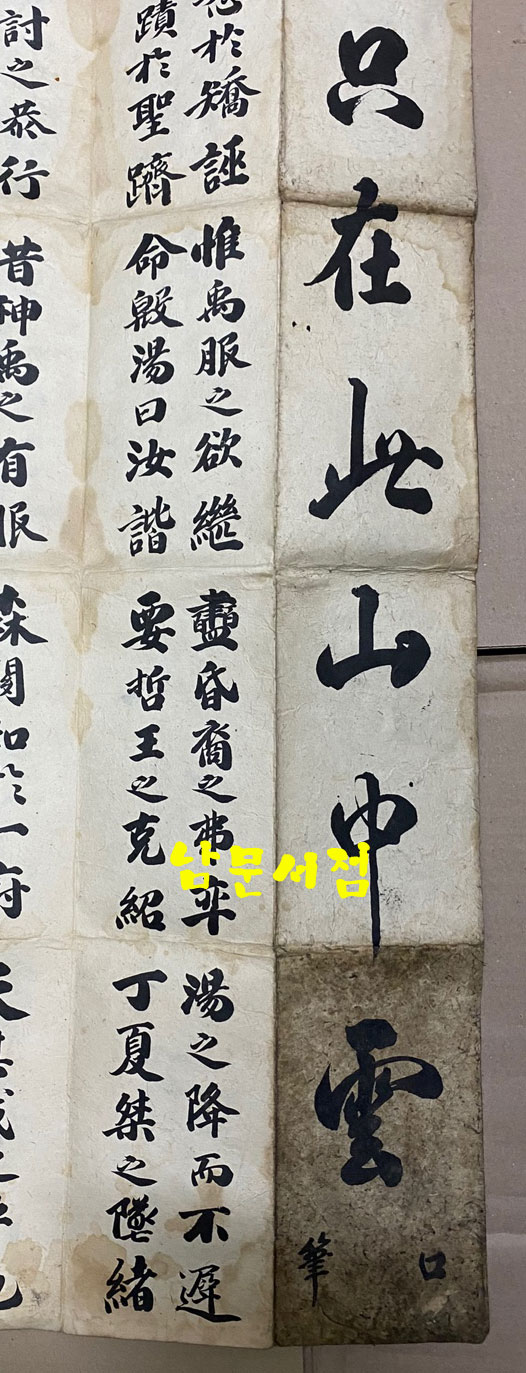 只在此山中雲
口
筆
於矯誣
惟禹服之欲繼
昏裔之弗率
湯之降而不遲
蹟於聖躋
命殷湯曰汝諧
要哲王之克紹
丁夏桀之墜緒
討之恭行
昔神禹之有服
남문서점